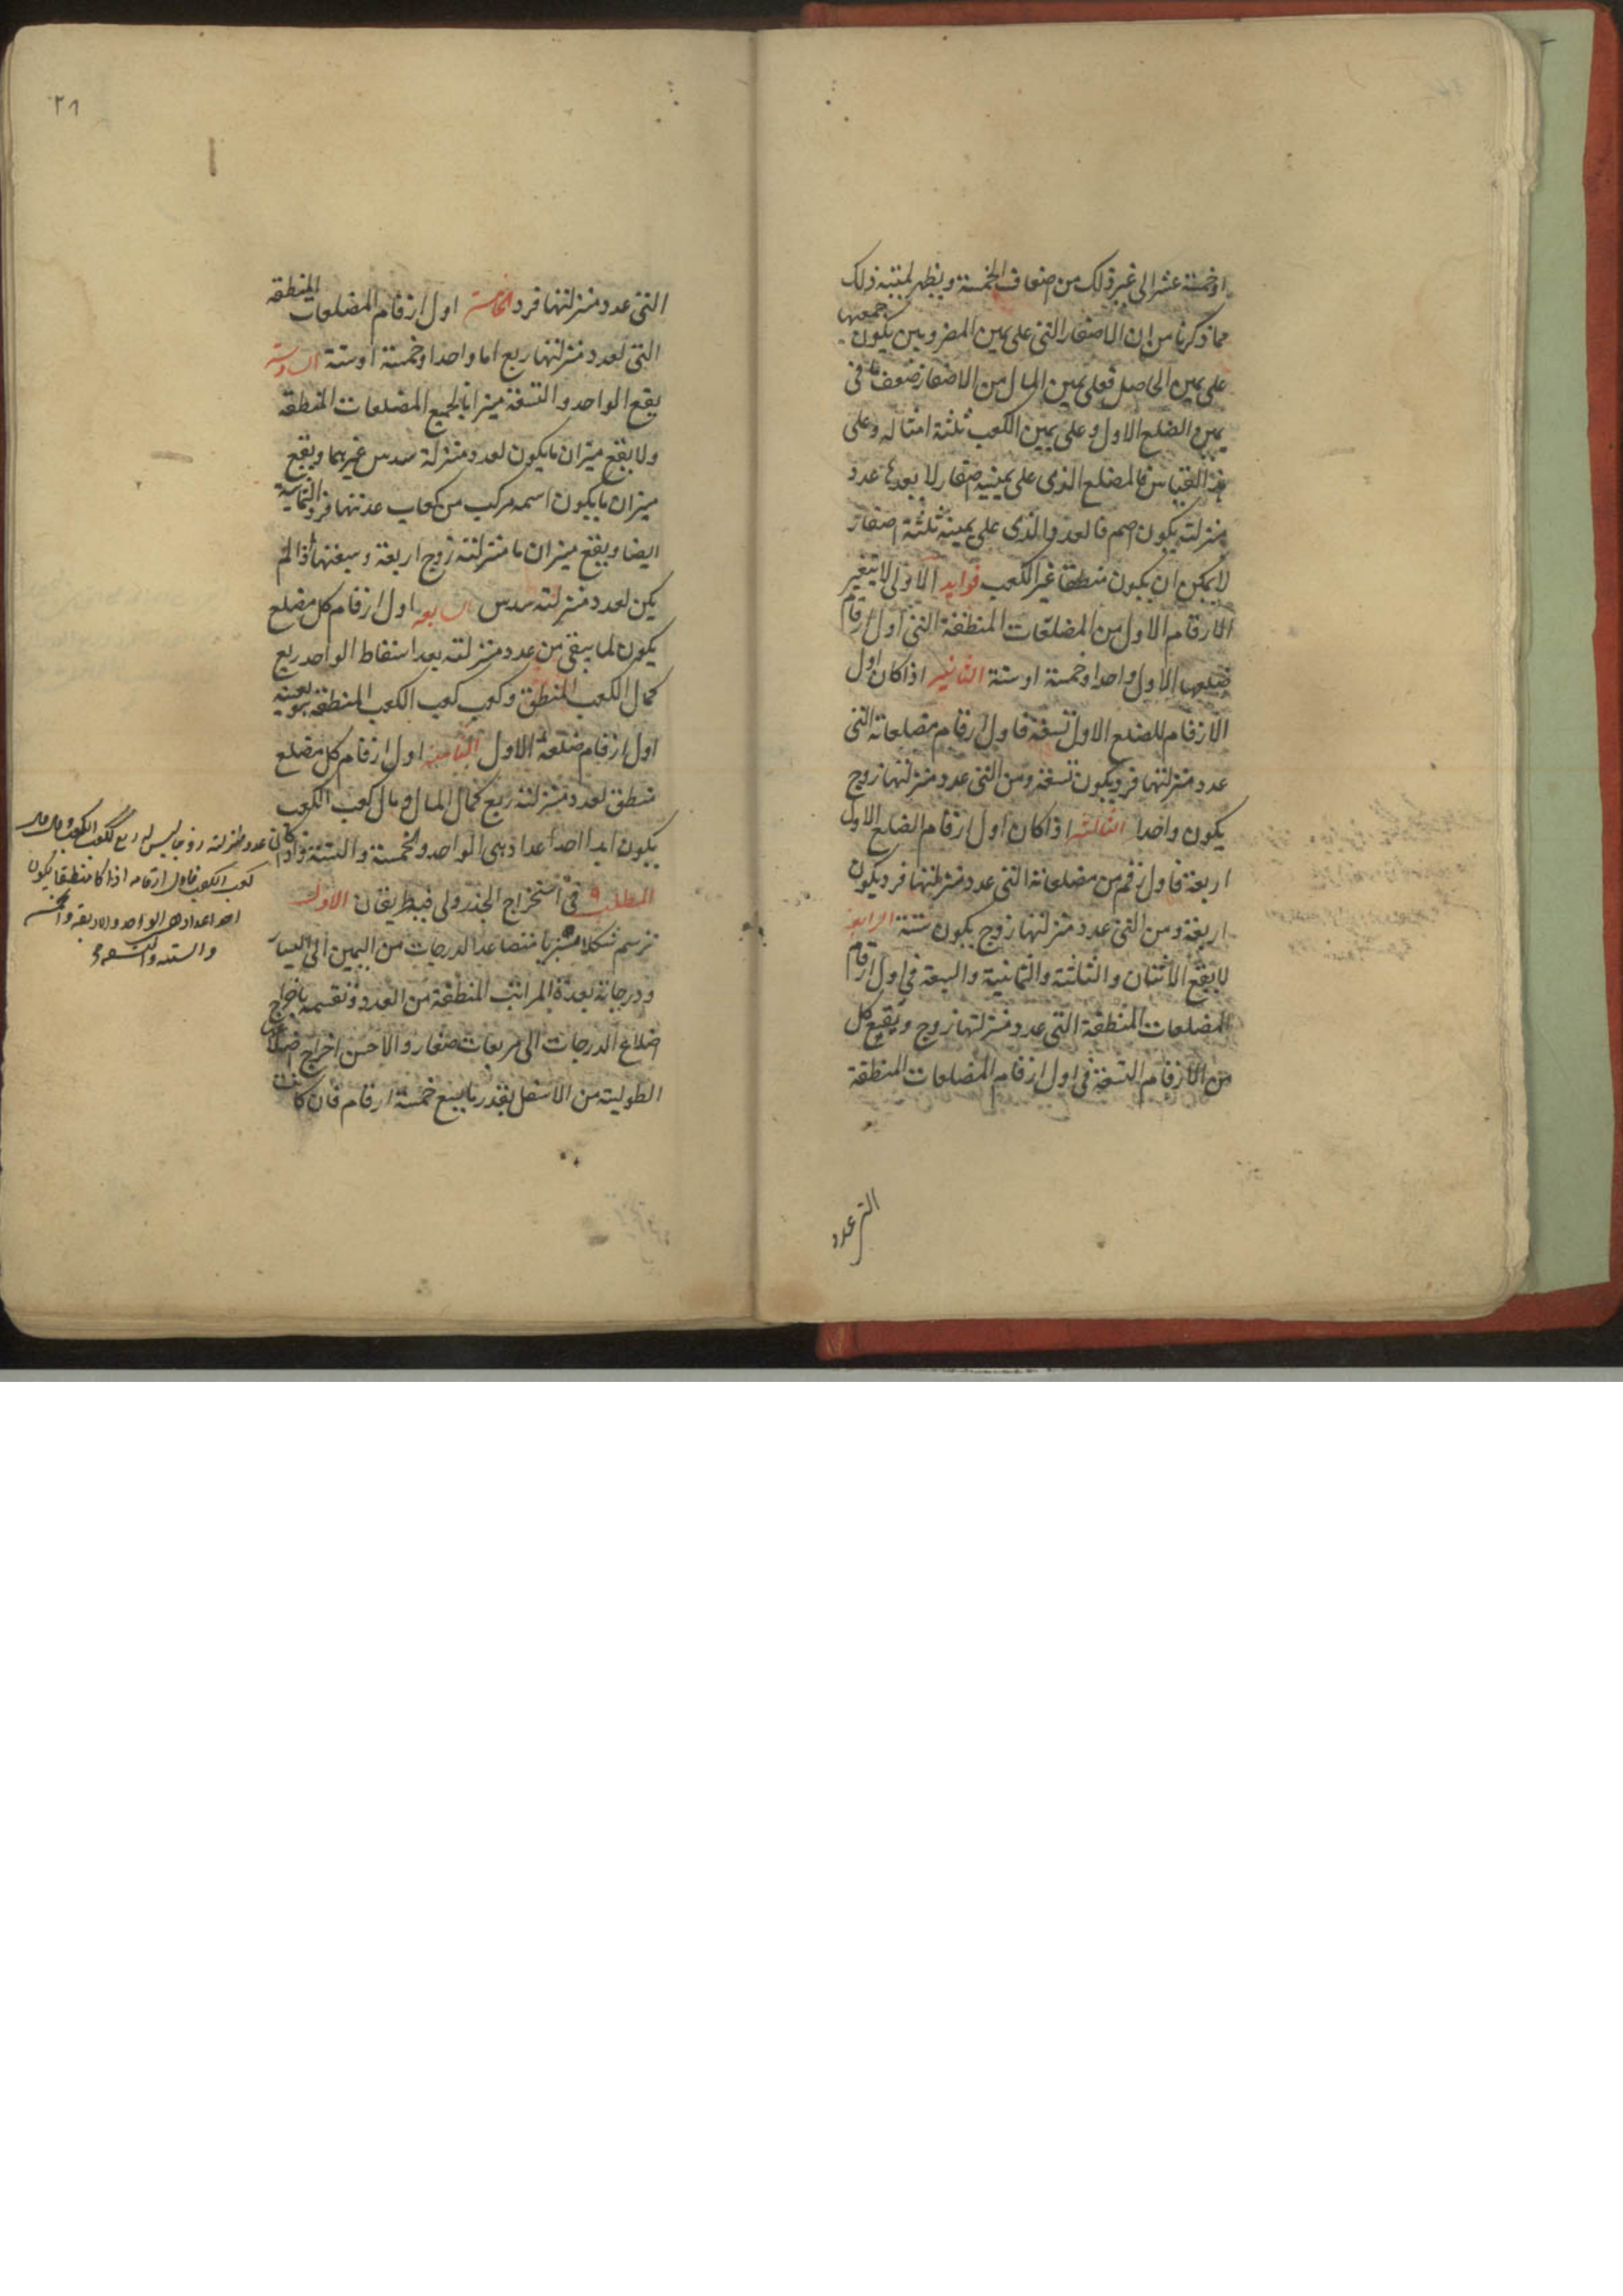 او خمسة عشر الى غير ذلك من اضعاف الخمسة ويظهر لميته ذلك
مما ذكرنا من ان الاصفار التي على يمين المضروبين يكون جمعها
على يمين الحاصل فعلى يمين المال من الاصفار ضعف ما في
يمين الضلع الاول وعلى يمين الكعب ثلثة امثاله وعلى
هذا القياس فالمضلع الذى على يمينه اصفار لا يعدها عدد
منزلته يكون اصم فالعدد الذى على يمينه ثلثة اصفار
لا يمكن ان يكون منطقا غير الكعب فوايد الاولى لا يتغير
الارقام الاول من المضلعات المنطقة التي اول ارقام
ضلعها الاول واحد او خمسة او ستة الثانية اذا كان اول
الارقام للضلع الاول تسعة فاول ارقام مضلعاته التي
عدد منزلتها فرد يكون تسعة ومن التي عدد منزلتها زوج
يكون واحدا الثالثة اذا كان اول ارقام الضلع الاول
اربعة فاول رقم من مضلعاته التي عدد منزلتها فرد يكون
اربعة ومن التي عدد منزلتها زوج يكون ستة الرابعة
لا يقع الاثنان والثلثة والثمانية والسبعة في اول ارقام
المضلعات المنطقة التي عدد منزلتها زوج ويقع كل
من الارقام التسعة في اول ارقام المضلعات المنطقة
التي عدد
٢٨
التي عدد منزلتها فرد الخامسة اول ارقام المضلعات المنطقه
التي لعدد منزلتها ربع اما واحد او خمسة او ستة السادسة
يقع الواحد والتسعة ميزانا لجميع المضلعات المنطقه
ولا يقع ميزان ما يكون لعدد منزلة سدس غيرهما ويقع
ميزان ما يكون اسمه مركب من كعاب عدتها فرد الثمانية
ايضا ويقع ميزان ما منزلته زوج اربعة وسبعة اذا لم
يكن لعدد منزلته سدس السابعه اول ارقام كل مضلع
يكون لما يبقى من عدد منزلته بعد اسقاط الواحد ربع
كمال الكعب المنطق وكعب كعب الكعب المنطقه هو بعينه
اول ارقام ضلعه الاول الثامنه اول ارقام كل مضلع
منطق لعدد منزلته ربع كمال المال ومال كعب الكعب
يكون ابدا احد اعداد هي الواحد والخمسة والستة واذا
المطلب ٩ في استخراج الجذر ولى فيه طريقان الاول
نرسم شكلا منبريا متصاعد الدرجات من اليمين الى اليسار
ودرجاته بعدة المراتب المنطقة من العدد ونقسمه باخراج
اضلاع الدرجات الى مربعات صغار والاحسن اخراج اضلاع
الطولية من الاسفل بقدر ما يسع خمسة ارقام فان كانت
كان عدد منزلته زوجا ليس له ربع ككعب الكعب ومال مال
كعب الكعب فاول ارقامه اذا كان منطقا يكون
احد اعداد هى الواحد والاربعة والخمسة
والستة والتسعة